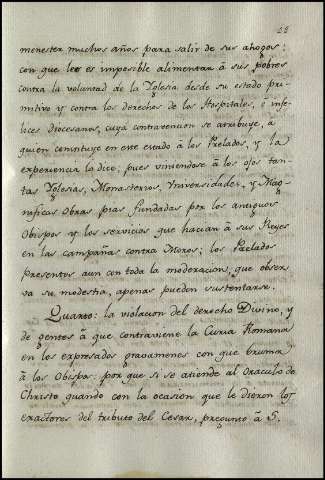 menester muchos años para salir de sus ahogos:
con que les es imposible alimentar à sus pobres
contra la voluntad de la Yglesia desde su estado pri-
mitivo y contra los derechos de los Hospitales, è infe-
lices diocesanos, cuya contravencion se atribuye, à
quien constituye en este estado à los Prelados, y la
experiencia lo dice; pues viniendose à los ojos tan-
tas Yglesias, Monasterios, Universidades, y Mag-
nificas Obras pias fundadas por los antiguos
Obispos y los servicios que hacian à sus Reyes
en las campañas contra Moros; los Prelados
presentes aun con toda la moderacion, que obser-
va su modestia, apenas pueden sustentarse.
Quarto: la violacion del derecho Divino, y
de gentes à que contraviene la Curia Romana
en los expresados gravamenes con que bruma
à los Obispos: por que si se atiende al Oraculo de
Christo quando con la ocasion que le dieron los
exactores del tributo del Cesar, preguntò à S.